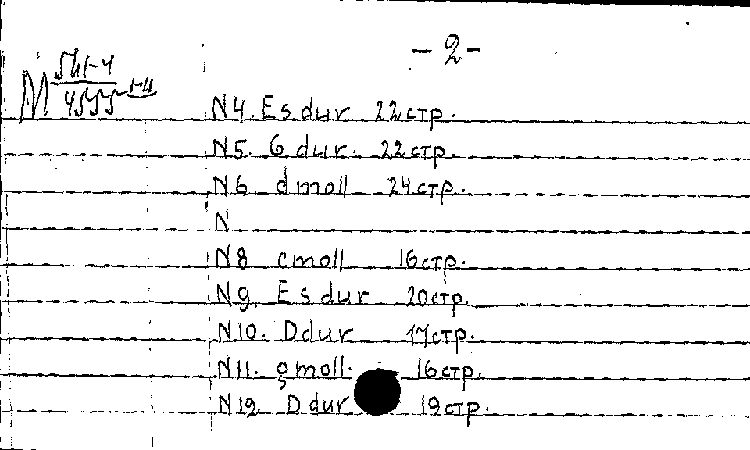 - 2 -
M
N4. Es dur 22 стр.
N5. G dur. 22 стр.
N6 d moll 24 стр.
N
N8 c moll 16 стр.
N9. Es dur 20 стр.
N10. D dur 17 стр.
N11. g moll. 16 стр.
N12 D dur 19 стр.